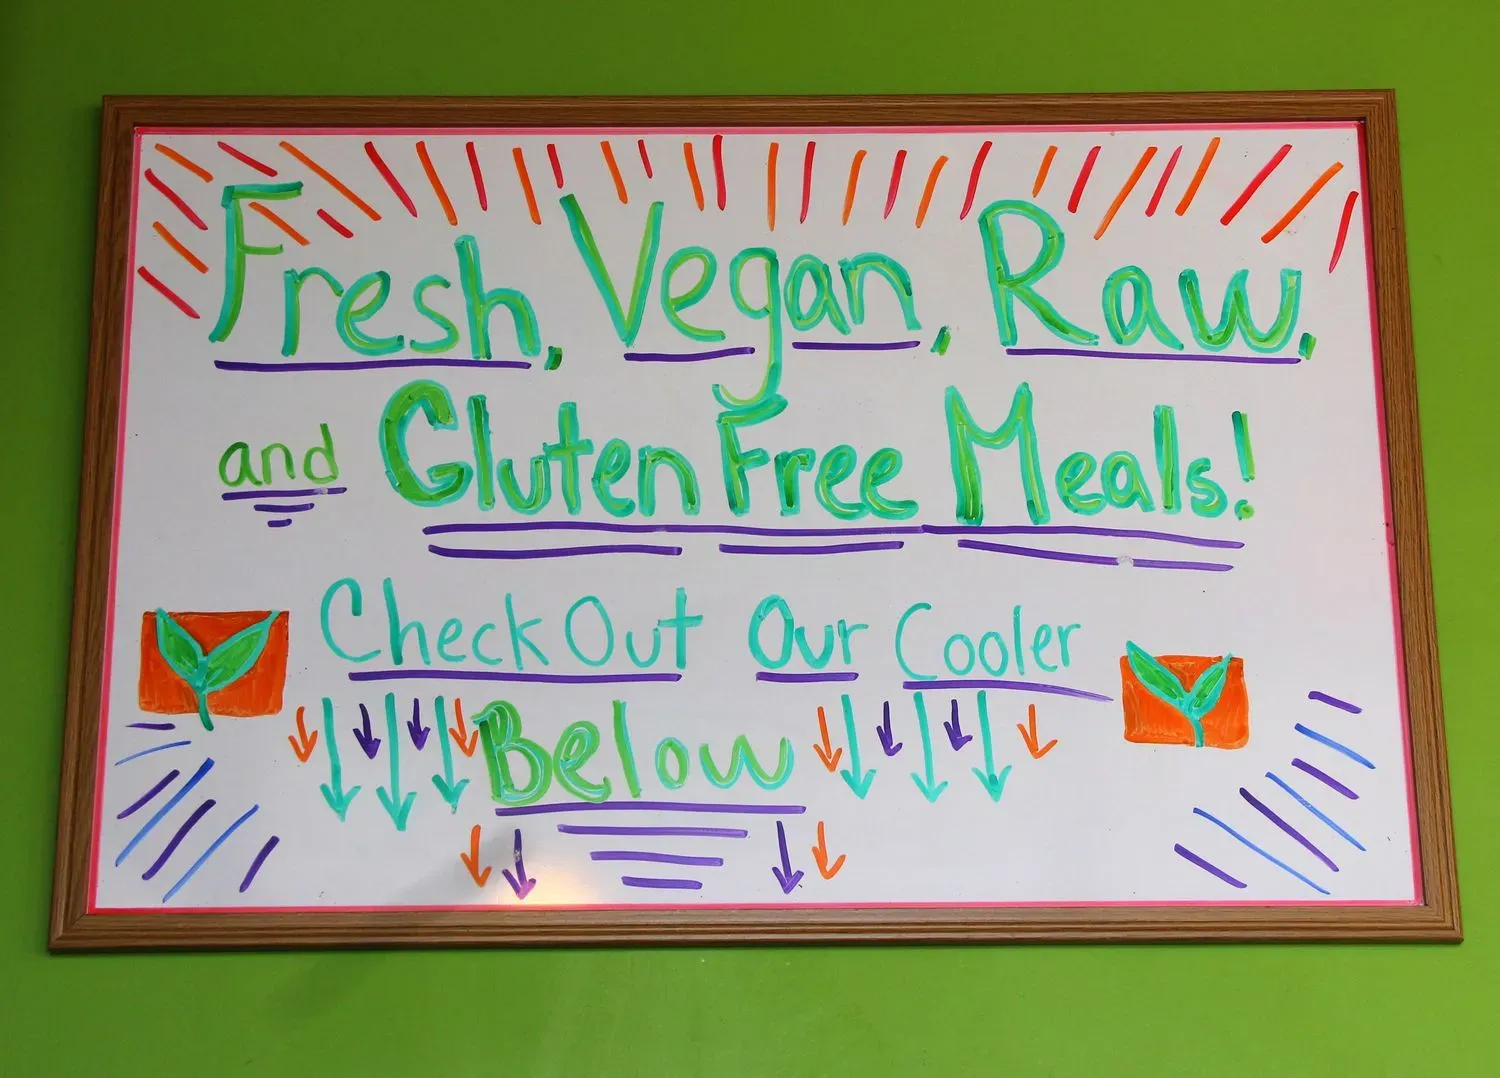 Fresh, Vegan, Raw,
and Gluten Free Meals!
Check Out Our Cooler
Below